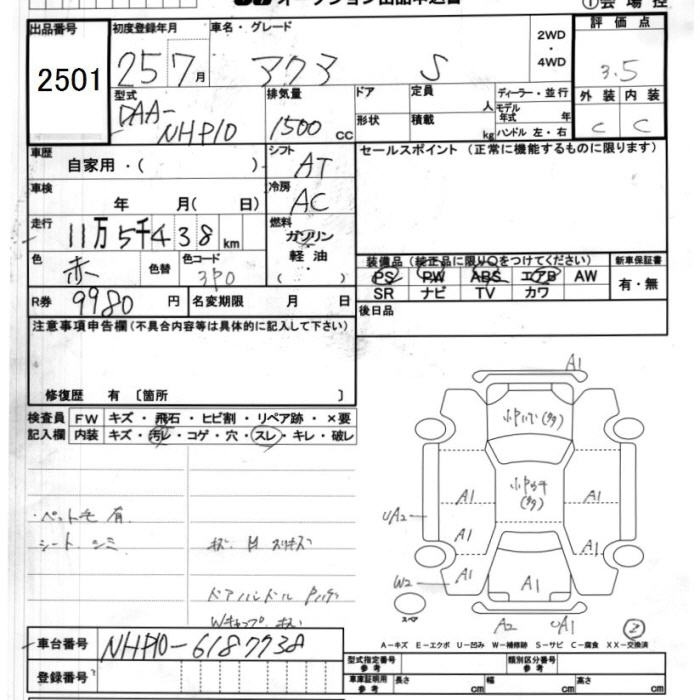 オークション出品申込書
①会場控
出品番号
2501
初度登録年月
25 7月
車名・グレード
アクア S
2WD
・
4WD
評価点
3.5
型式
DAA-
NHP10
排気量
1500 cc
ドア
定員
人
ディーラー・並行
モデル
年式 年
形状
積載
kg
ハンドル 左・右
外装 内装
C C
車歴
自家用・( )
シフト
AT
セールスポイント (正常に機能するものに限ります)
車検
年 月( 日)
冷房
AC
走行
11万5千438km
燃料
ガソリン
軽油
( )
色
赤
色替
色コード
3P0
装備品 (装正品に限り○をつけてください)
新車保証書
PS PW ABS エアB AW
SR ナビ TV カワ
有・無
R券
9980円
名変期限 月 日
後日品
注意事項申告欄(不具合内容等は具体的に記入して下さい)
修復歴 有〔箇所 〕
検査員
記入欄
FW キズ・飛石・ヒビ割・リペア跡・×要
内装 キズ・汚レ・コゲ・穴・スレ・キレ・破レ
・ペット毛 有
シート シミ
キズ H スリキズ
ドアハンドル
Wキャップ キズ
A1
A1
A1
UA2
A1
A1
W2
A1
A1
A2
UA1
スペア
②
A−キズ E−エクボ U−凹み W−補修跡 S−サビ C−腐食 XX−交換済
車台番号
NHP10-6187738
登録番号
型式指定番号
参考
類別区分番号
参考
車庫証明用
参考
長さ cm
幅 cm
高さ cm